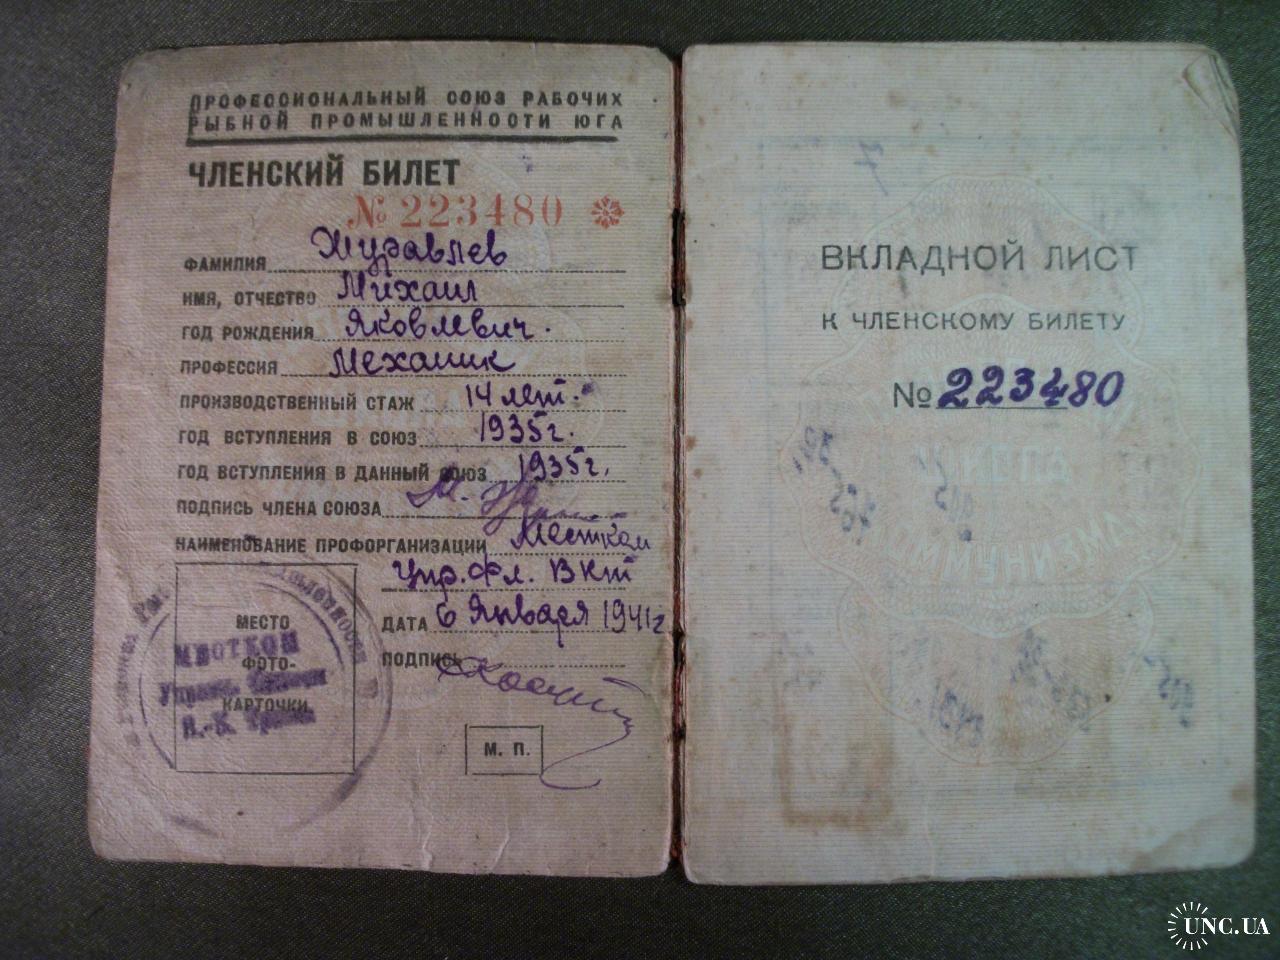 ПРОФЕССИОНАЛЬНЫЙ СОЮЗ РАБОЧИХ
РЫБНОЙ ПРОМЫШЛЕННОСТИ ЮГА
ЧЛЕНСКИЙ БИЛЕТ
№ 223480
ФАМИЛИЯ Журавлев
ИМЯ, ОТЧЕСТВО Михаил
ГОД РОЖДЕНИЯ Яковлевич.
ПРОФЕССИЯ Механик
ПРОИЗВОДСТВЕННЫЙ СТАЖ 14 лет.
ГОД ВСТУПЛЕНИЯ В СОЮЗ 1935г.
ГОД ВСТУПЛЕНИЯ В ДАННЫЙ СОЮЗ 1935г.
ПОДПИСЬ ЧЛЕНА СОЮЗА
НАИМЕНОВАНИЕ ПРОФОРГАНИЗАЦИИ Местком
Упр. Фл. ВКт
ДАТА 6 Января 1941г
ПОДПИСЬ
МЕСТО
ФОТО-
КАРТОЧКИ
МЕСТКОМ
М. П.
ВКЛАДНОЙ ЛИСТ
К ЧЛЕНСКОМУ БИЛЕТУ
№ 223480
UNC.UA